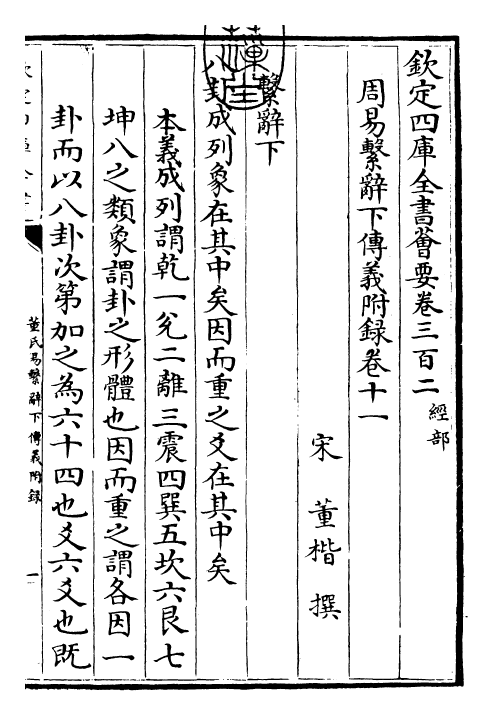 欽定四庫全書薈要卷三百二 經部
周易繫辭下傳義附録卷十一
宋 董楷 撰
繫辭下
八卦成列象在其中矣因而重之爻在其中矣
本義成列謂乾一兊二離三震四巽五坎六艮七
坤八之類象謂卦之形體也因而重之謂各因一
卦而以八卦次第加之為六十四也爻六爻也既
董氏易繫辭下傳義附録
一